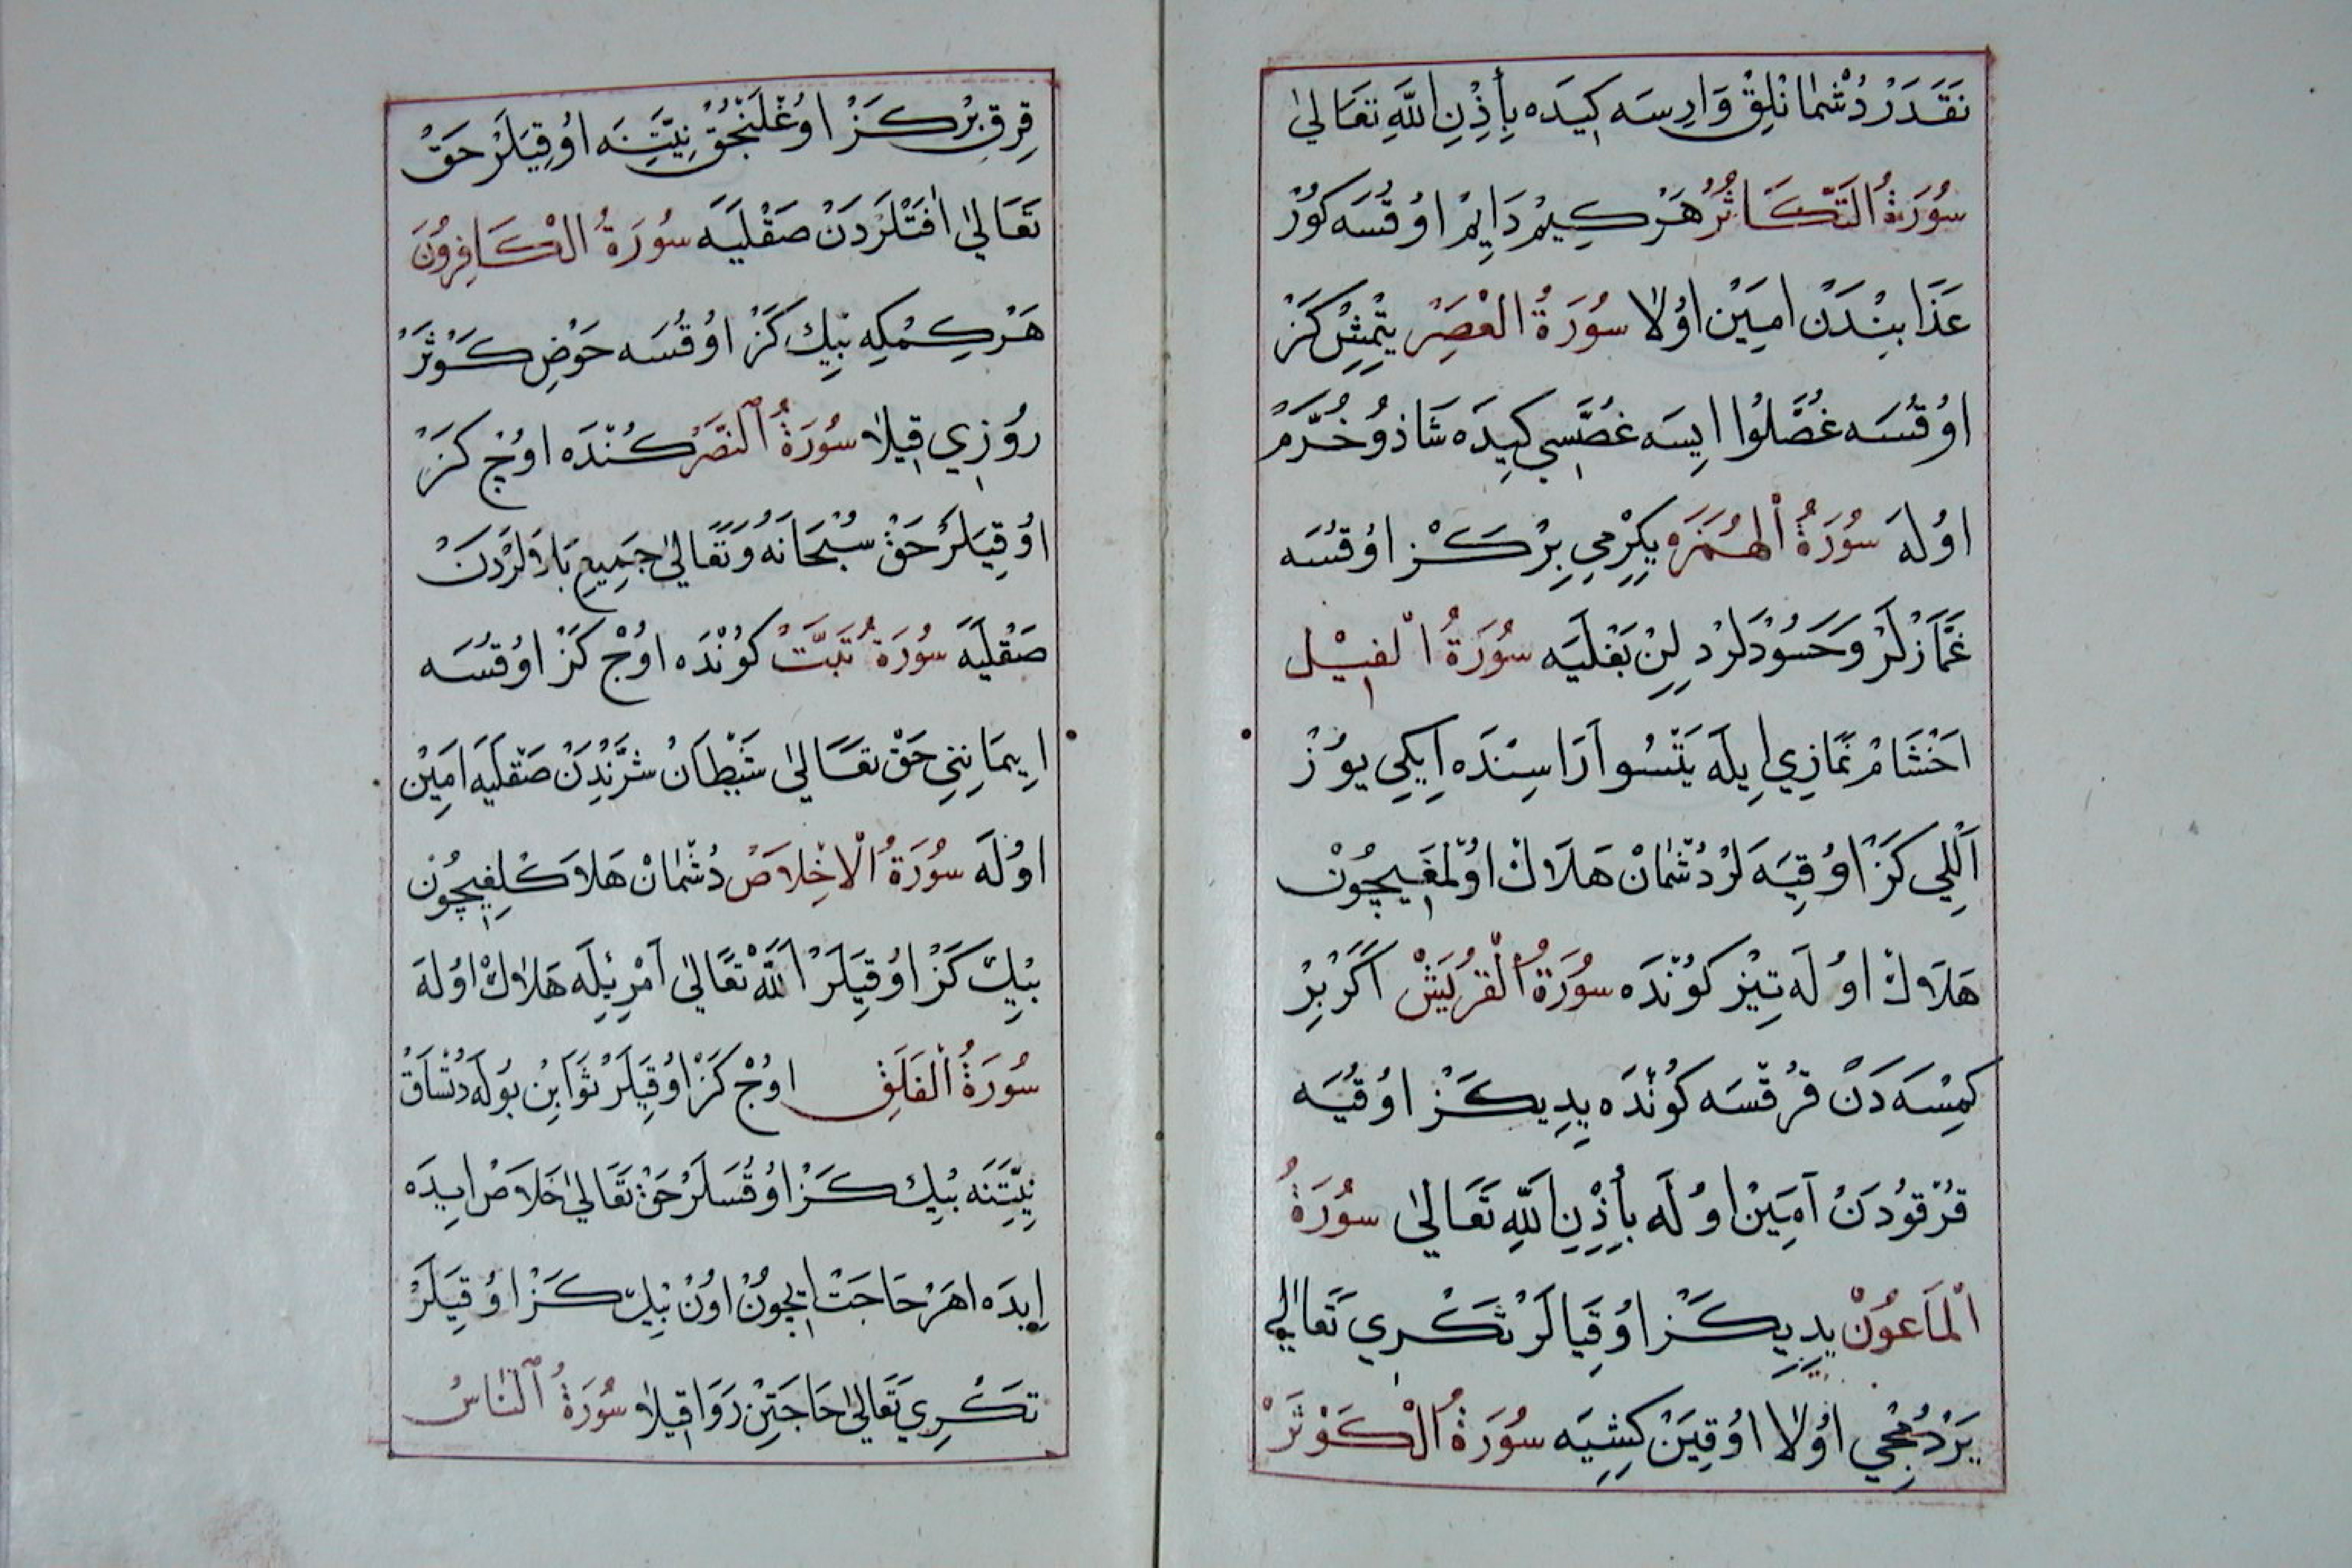 نَقَدَرْ دُشْمَانْلِقْ وَارِسَه كِيدَه بِأِذْنِ اللّٰهِ تَعَالٰى
سُورَةُ التَّكَاثُرْ هَرْ كِيمْ دَايِمْ اوُقُسَه كَوُرْ
عَذَابِنْدَنْ امِينْ اوُلَا سُورَةُ الْعَصِرْ يتْمِشْ كَزْ
اوُقُسَه غُصَّلُوا ايسَه غُصَّسِي كِيدَه شَاذ وُ خُرَّمْ
اوُلَه سُورَةُ الْهُمَزَه يِكِرْمِي بِرْ كَزْ اوُقسُه
غَمَّازْلَرْ وَحَسُودْلَرْ دِلِنْ بَغْلَيَه سُورَةُ الْفِيْل
اَخْشَامْ نَمَازِي اِيلَه يَتْسُو اَرَاسِنْدَه اِيكِي يوُزْ
اَلْلِي كَزْ اوُقِيَه لَرْ دُشْمَانْ هَلَاكْ اوُلْمَغِيچُونْ
هَلَاكْ اوُلَه تِيْزْ كوُنْدَه سُورَةُ الْقُرَيْشْ اَكَرْ بِرْ
كِمْسَه دَنْ قُرْقسَه كوُنْدَه يِدِي كَزْ اوُقُيَه
قُرْقوُدَنْ اَمِينْ اوُلَه بِأِذْنِ اللّٰهِ تَعَالٰى سُورَةُ
الْمَاعوُنْ يِدِي كَزْ اوُقِيَالَرْ تَكْرِي تَعَالٰى
يَرْدُمْجِي اوُلَا اوُقِيَنْ كِشِيَه سُورَةُ الْكَوْثَرْ
قِرِقْ بِرْ كَزْ اوُغْلَنْجُقْ نِيَّتِنَه اوُقِيَلَرْ حَقْ
تَعَالٰى اٰفَتْلَرْدَنْ صَقْلَيَه سُورَةُ الْكَافِرُونَ
هَرْ كِمْكِه بِيكْ كَزْ اوُقُسَه حَوْضِ كَوْثَرْ
رُوزِي قِيلَا سُورَةُ النَّصَرْ كُنْدَه اوُچْ كَزْ
اوُقِيَلَرْ حَقْ سُبْحَانَهُ وَتَعَالٰى جَمِيعِ يَارَالَرْدَنْ
صَقْلَيَه سُورَةُ تَبَّتْ كوُنْدَه اوُچْ كَزْ اوُقُسَه
ايِمَانِنِي حَقْ تعَالٰى شَيْطَانْ شَرِّنْدَنْ صَقْلَيَه اَمِينْ
اوُلَه سُورَةُ الْاِخْلَاصْ دُشْمَانْ هَلَاكْلِغِيچُونْ
بِيكْ كَزْ اوُقِيَلَرْ اَللّٰهْ تَعَالٰى اَمْرِيلَه هَلَاكْ اوُلَه
سُورَةُ الْفَلَقِ اوُچْ كَزْ اوُقِيَلَرْ ثَوَابِنْ بوُلَه دُتْسَاقْ
نِيَّتِنَه بِيكْ كَزْ اوُقُسَلَرْ حَقْ تَعَالٰى خَلَاصْ ايدَه
اِيدَه اهَرْ حَاجَتْ اِيچُونْ اوُنْ بِيكْ كَزْ اوُقِيَلَرْ
تكَرِي تَعَالٰى حَاجَتِنْ رَوَا قِيلَا سُورَةُ النَّاسْ